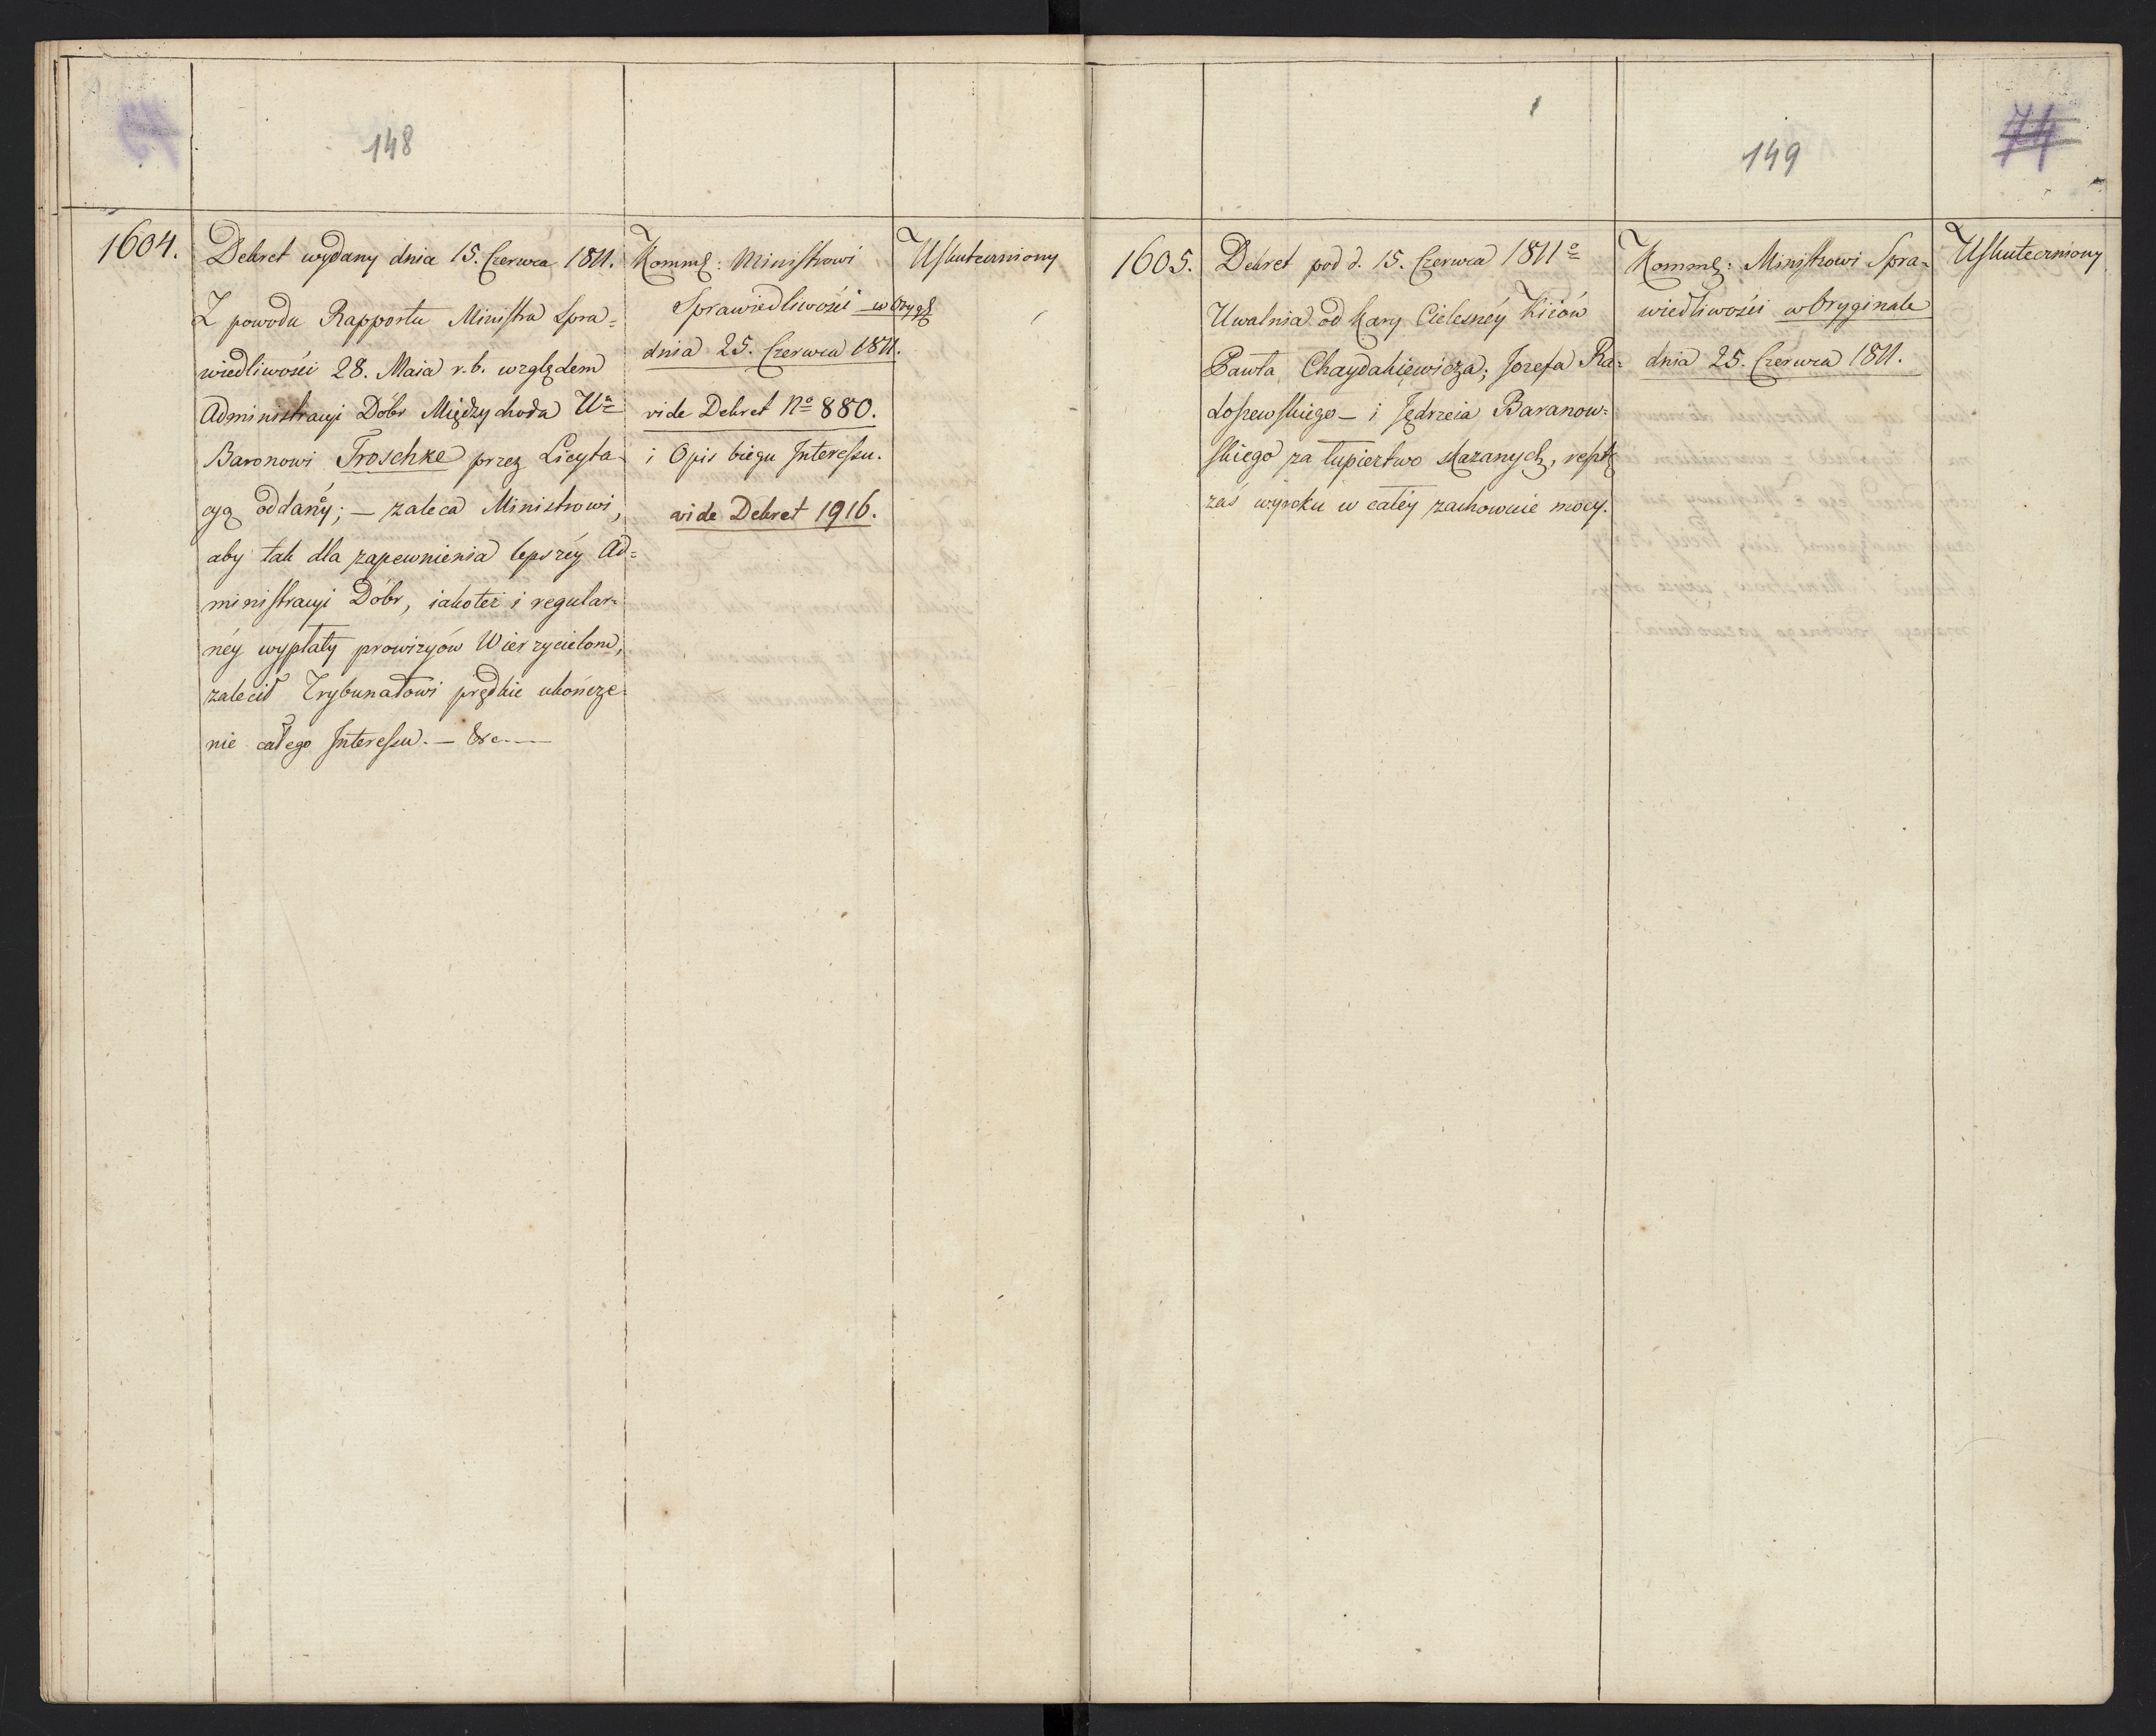 148
1604.
Dekret wydany dnia 15. Czerwca 1811.
Z powodu Rapportu Ministra Spra=
wiedliwości 28. Maia r. b. względem
Administracyi Dóbr Międzychoda Ur
Baronowi Troschke przez Licyta-
cyą oddanéy; — zaleca Ministrowi,
aby tak dla zapewnienia lepszéy Ad=
ministracyi Dóbr, iakoteż i regular=
néy wypłaty prowizyów Wierzycielom,
zalecił Trybunałowi prędkie ukończe=
nie całego Interessu. — &c —
Komm: Ministrowi
Sprawiedliwości w Oryg
dnia 25. Czerwca 1811.
vide Dekret No 880.
i Opis biegu Interessu.
vide Dekret 1916.
Uskuteczniony
149
74
1605.
Dekret pod d. 15. Czerwca 1811o
Uwalnia od Kary Cielesnéy Kiiów
Pawła Chaydakiewicza; Jozefa Ra=
doszewskiego — i Jędrzeia Baranow=
skiego za łupieztwo skazanych, reszt
zaś wyroku w całéy zachowuie mocy.
Komm: Ministrowi Spra=
wiedliwości w Oryginale
dnia 25. Czerwca 1811.
Uskuteczniony